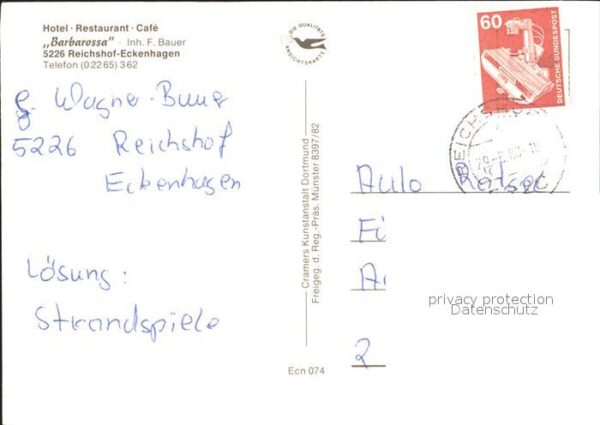 Hotel · Restaurant · Café
„Barbarossa" · Inh. F. Bauer
5226 Reichshof-Eckenhagen
Telefon (02265) 362
DIE QUALITÄTS
ANSICHTSKARTE
60
DEUTSCHE BUNDESPOST
REICHSHOF
g. Wagner-Buur
5226 Reichshof
Eckenhagen
Lösung:
Strandspiele
Cramers Kunstanstalt Dortmund
Freigeg. d. Reg.-Präs. Münster 8397/82
Ecn 074
Aulo
2
privacy protection
Datenschutz